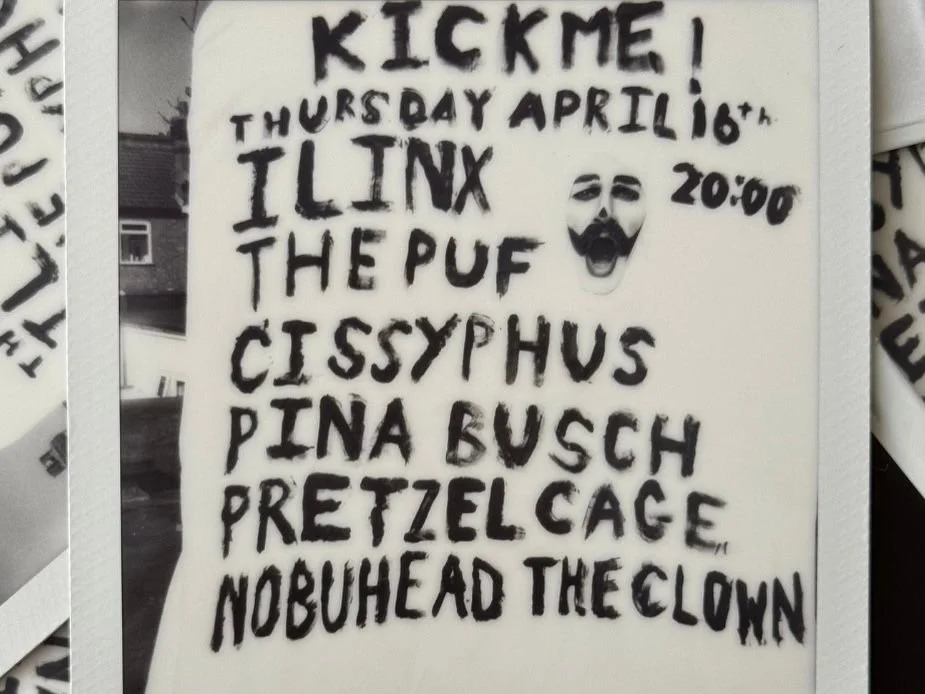 KICKME!
THURSDAY APRIL 16th
20:00
ILINX
THE PUF
CISSYPHUS
PINA BUSCH
PRETZEL CAGE
NOBUHEAD THE CLOWN